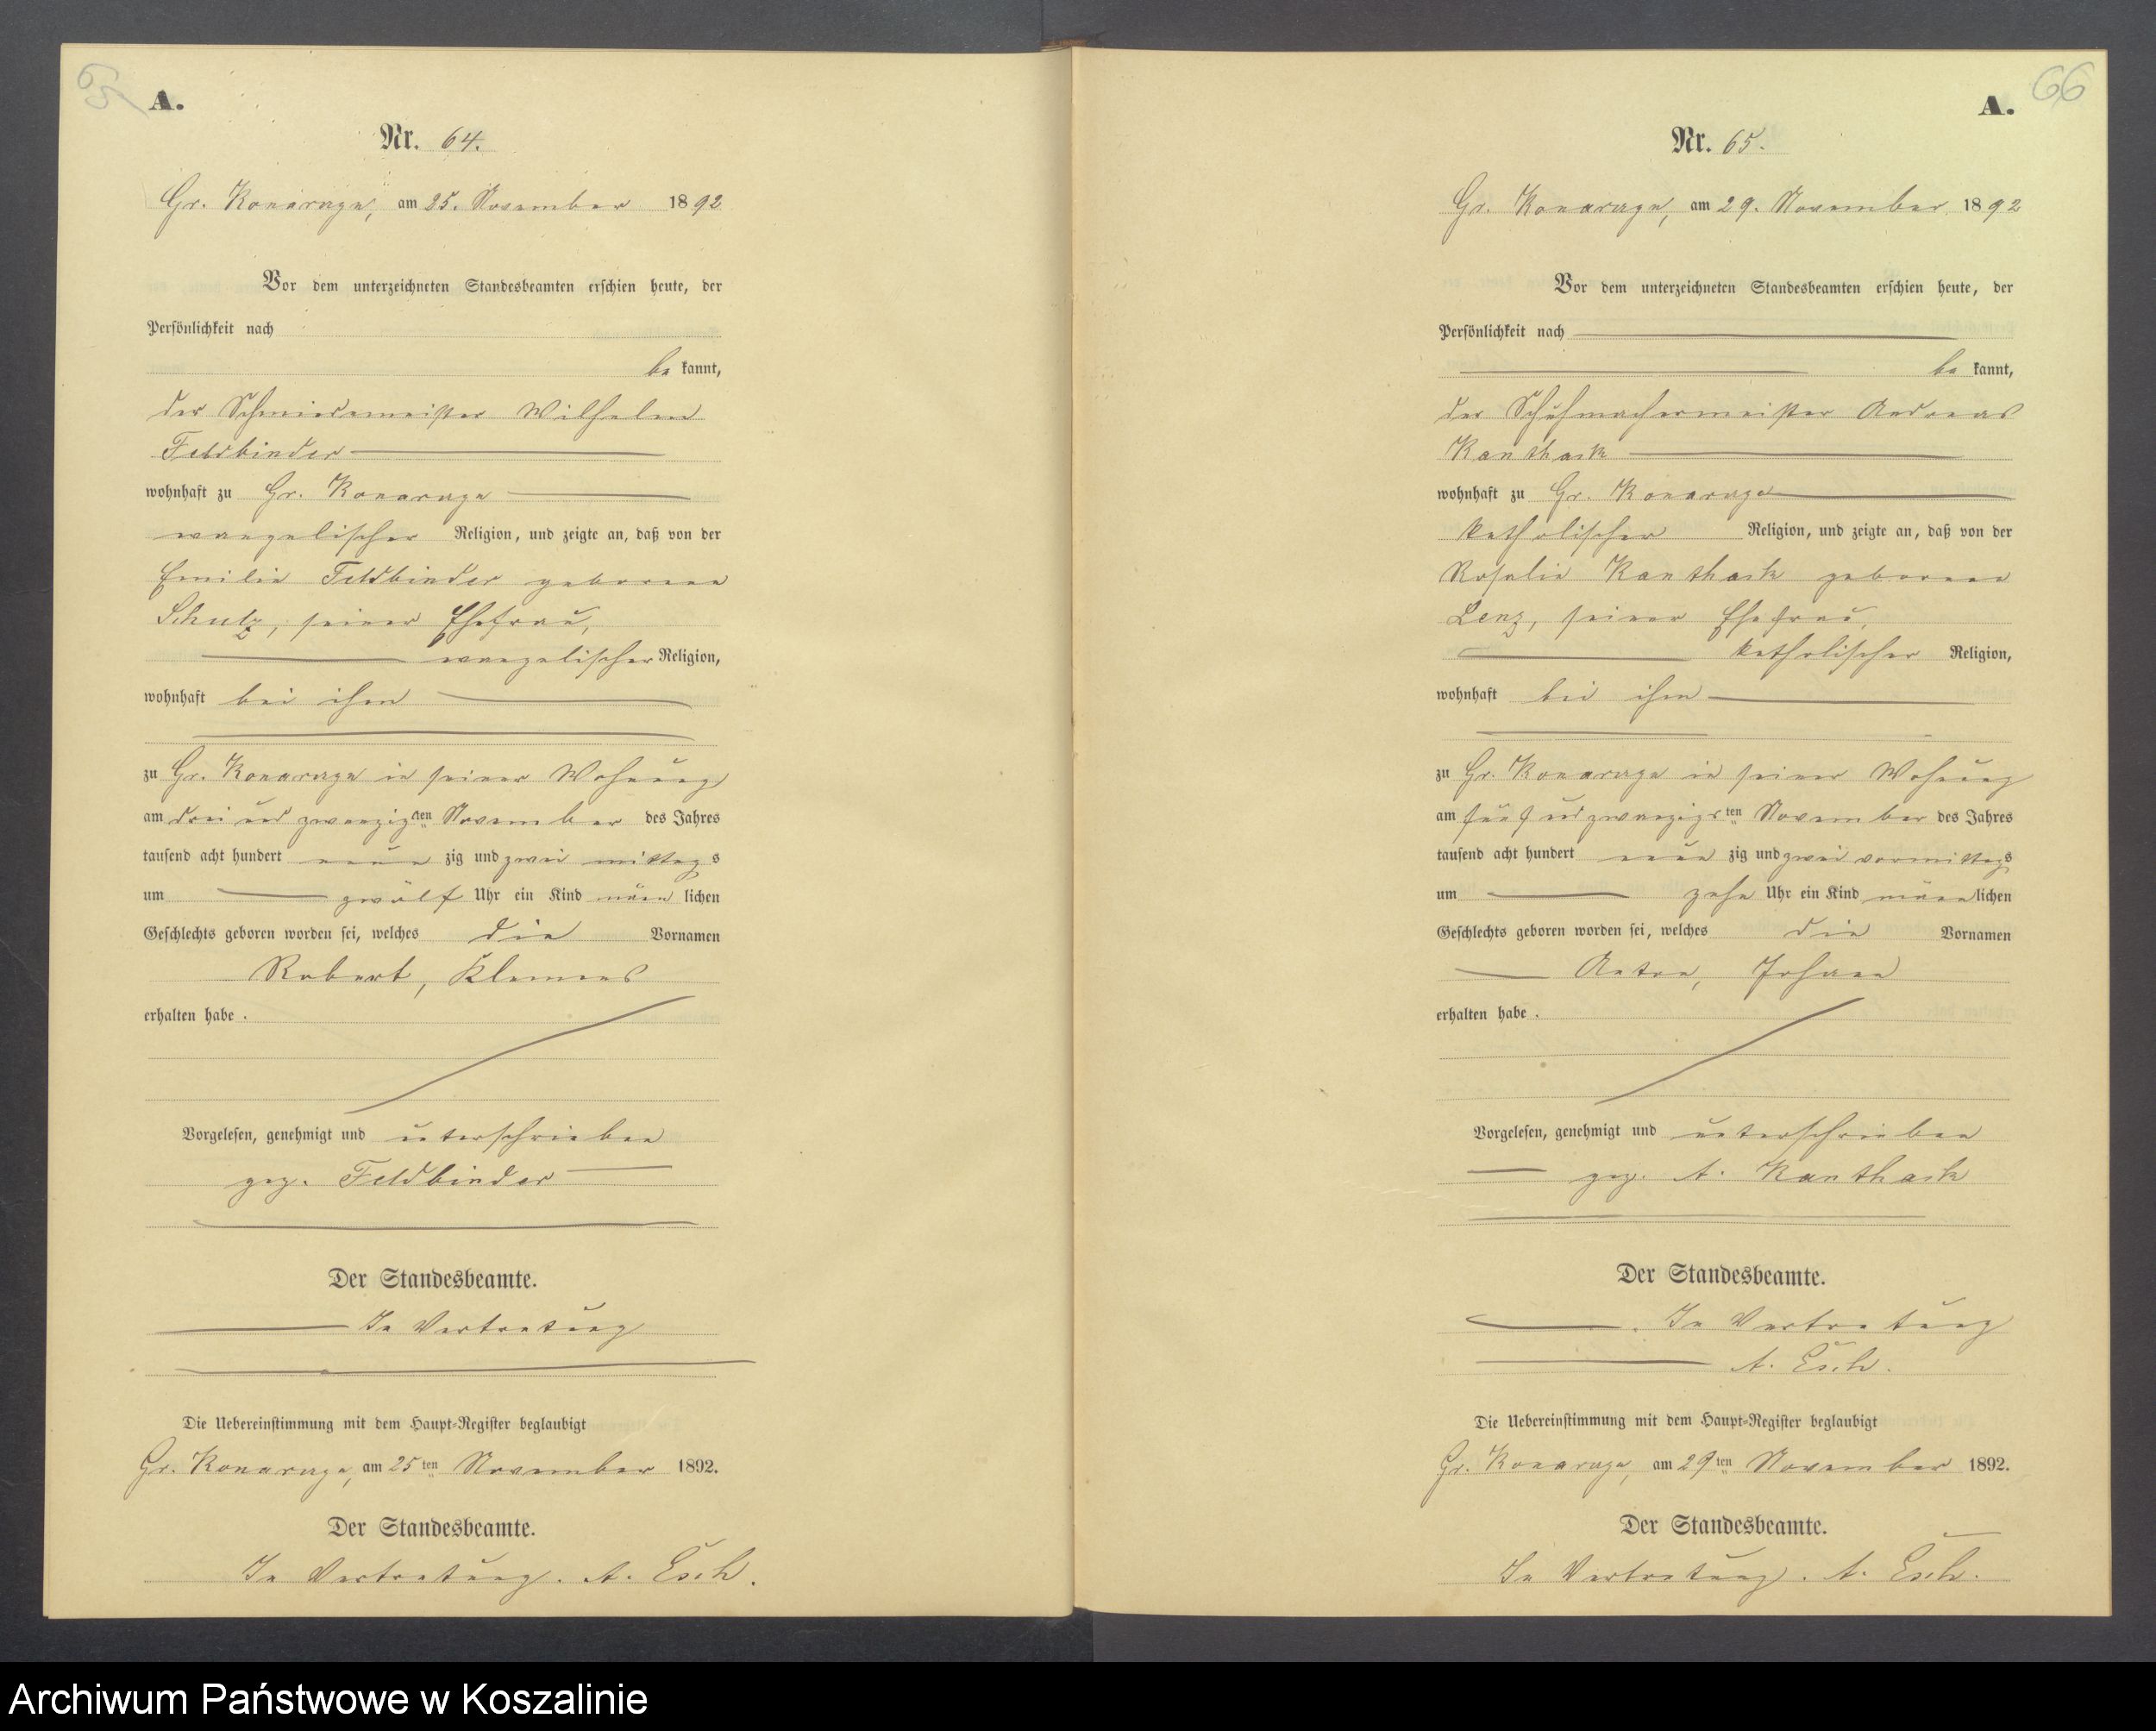 65
A.
Nr. 64.
Gr. Konarzyn, am 25. November 1892
Vor dem unterzeichneten Standesbeamten erschien heute, der
Persönlichkeit nach
be kannt,
der Schmiedemeister Wilhelm
Feldbinder
wohnhaft zu Gr. Konarzyn
evangelischer Religion, und zeigte an, daß von der
Emilie Feldbinder geborenen
Schulz, seiner Ehefrau,
evangelischer Religion,
wohnhaft bei ihm
zu Gr. Konarzyn in seiner Wohnung
am drei und zwanzigsten November des Jahres
tausend acht hundert neun zig und zwei mittags
um zwölf Uhr ein Kind männ lichen
Geschlechts geboren worden sei, welches die Vornamen
Robert, Klemens
erhalten habe.
Vorgelesen, genehmigt und unterschrieben
gez. Feldbinder
Der Standesbeamte.
In Vertretung
Die Uebereinstimmung mit dem Haupt-Register beglaubigt
Gr. Konarzyn, am 25ten November 1892.
Der Standesbeamte.
In Vertretung. A. Esch.
66
A.
Nr. 65.
Gr. Konarzyn, am 29. November 1892
Vor dem unterzeichneten Standesbeamten erschien heute, der
Persönlichkeit nach
be kannt,
der Schuhmachermeister Andreas
Kanthack
wohnhaft zu Gr. Konarzyn
katholischer Religion, und zeigte an, daß von der
Rosalie Kanthack geborenen
Lenz, seiner Ehefrau,
katholischer Religion,
wohnhaft bei ihm
zu Gr. Konarzyn in seiner Wohnung
am fünf und zwanzigsten November des Jahres
tausend acht hundert neun zig und zwei vormittags
um zehn Uhr ein Kind männlichen
Geschlechts geboren worden sei, welches die Vornamen
Anton, Johann
erhalten habe.
Vorgelesen, genehmigt und unterschrieben
gez. A. Kanthack
Der Standesbeamte.
In Vertretung
A. Esch.
Die Uebereinstimmung mit dem Haupt-Register beglaubigt
Gr. Konarzyn, am 29ten November 1892.
Der Standesbeamte.
In Vertretung. A. Esch.
Archiwum Państwowe w Koszalinie